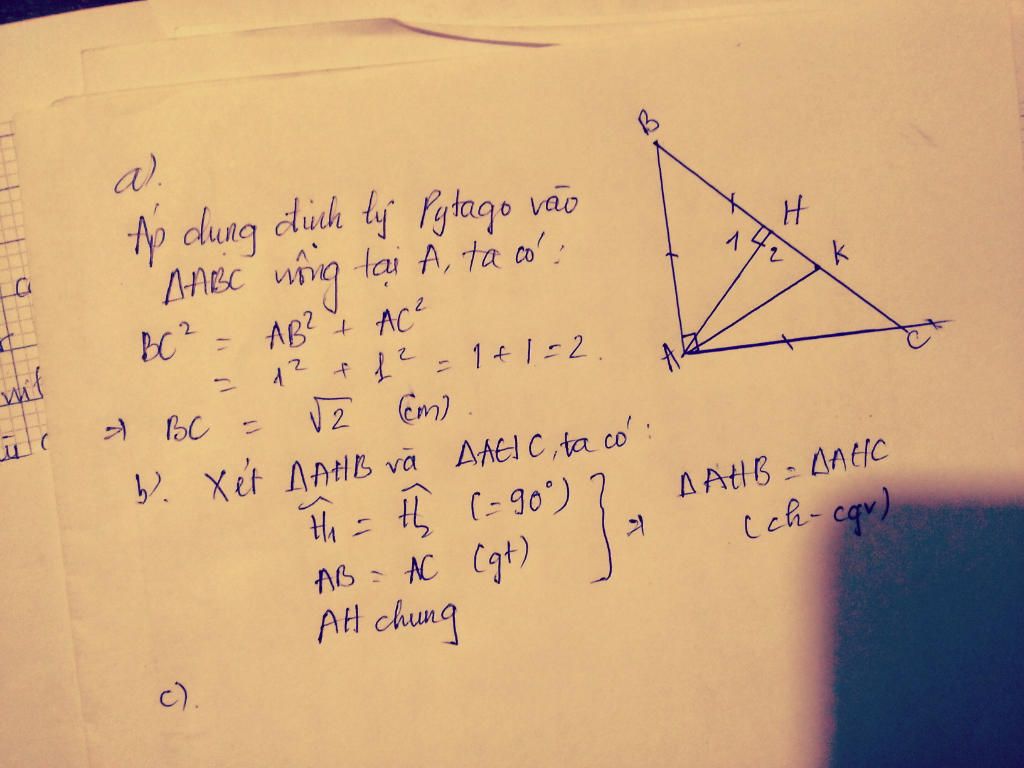 a).
Áp dụng định lý Pytago vào
ΔABC vuông tại A, ta có:
BC² = AB² + AC²
= 1² + 1² = 1 + 1 = 2.
⇒ BC = √2 (cm).
b). Xét ΔAHB và ΔAHC, ta có:
Ĥ₁ = Ĥ₂ (= 90°)
AB = AC (gt)
AH chung
} ⇒ ΔAHB = ΔAHC
(ch - cgv)
c).
B
H
1
2
K
A
C